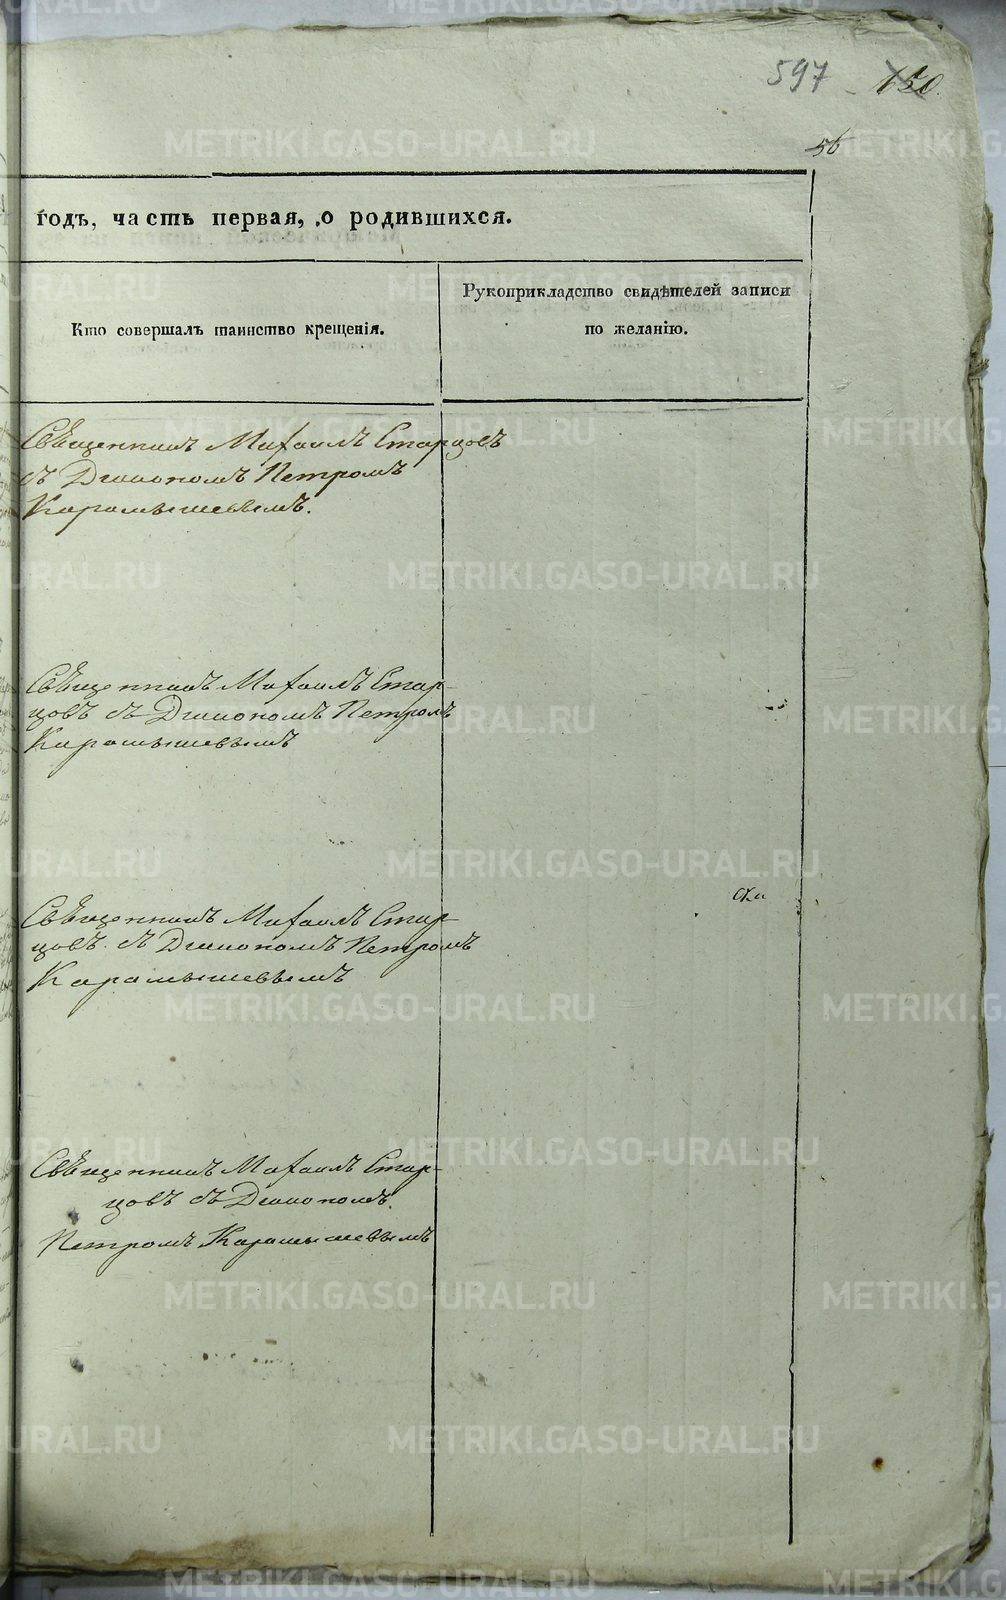 597
150.
56
годъ, часть первая, о родившихся.
Кто совершалъ таинство крещенія.
Рукоприкладство свидѣтелей записи
по желанію.
Священникъ Михаилъ Старцовъ
съ Діакономъ Петромъ
Карамышевымъ.
Священникъ Михаилъ Стар-
цовъ съ Діакономъ Петромъ
Карамышевымъ
Священникъ Михаилъ Стар-
цовъ съ Діакономъ Петромъ
Карамышевымъ
Священникъ Михаилъ Стар-
цовъ съ Діакономъ
Петромъ Карамышевымъ
METRIKI.GASO-URAL.RU